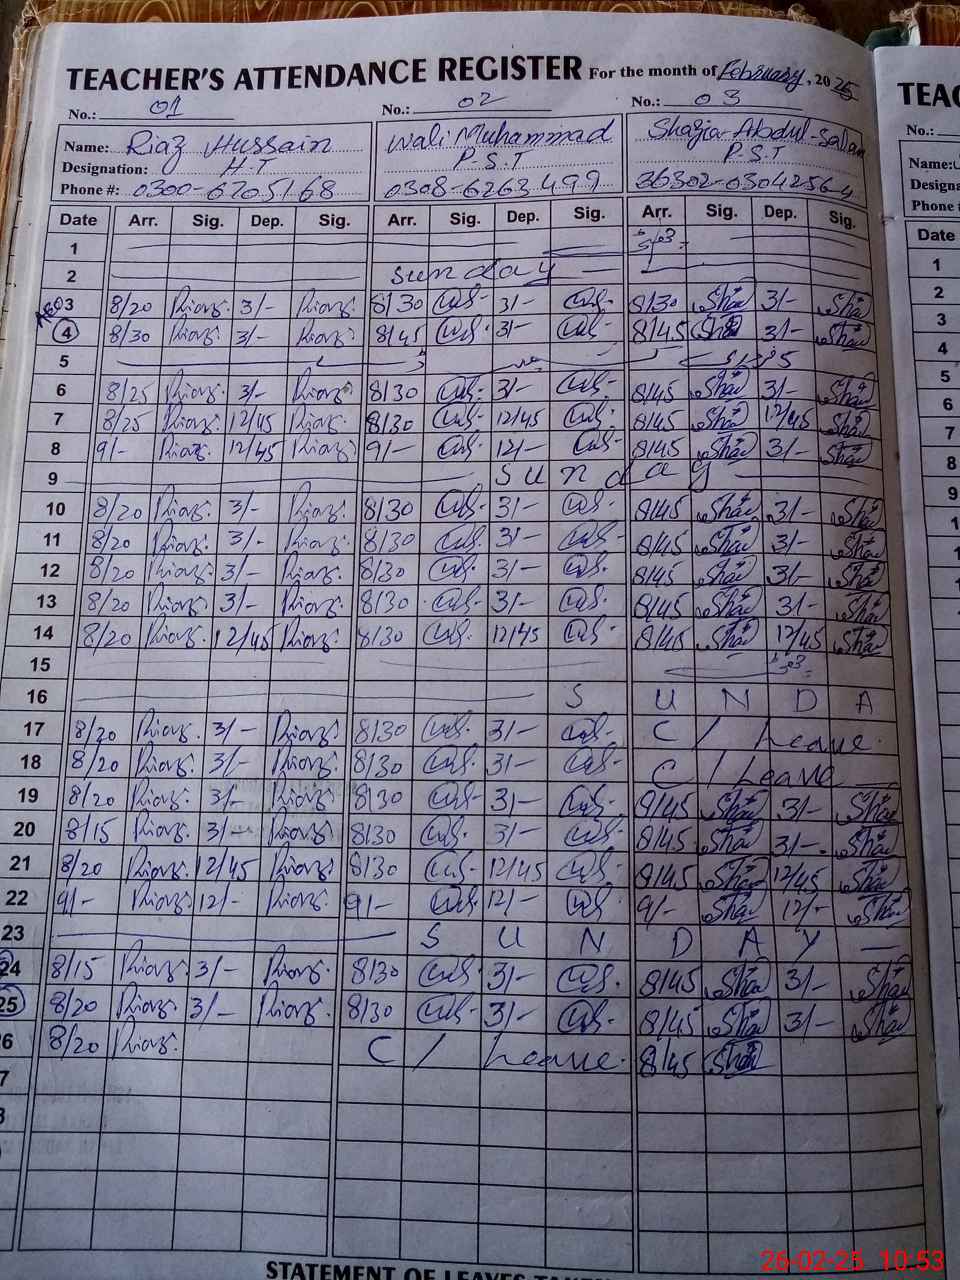 TEACHER'S ATTENDANCE REGISTER For the month of February, 2025
No.: 01 No.: 02 No.: 03
Name: Riaz Hussain Wali Muhammad Shazia Abdul Salam
Designation: H.T P.S.T P.S.T
Phone #: 0300-6705168 0308-6263499 36302-0304256-4
Date Arr. Sig. Dep. Sig. Arr. Sig. Dep. Sig. Arr. Sig. Dep. Sig.
1
2 Sunday
AEO 3 8/20 Riaz 3/- Riaz 8/30 3/- 8/30 Sha 3/- Sha
4 8/30 Riaz 3/- Riaz 8/45 3/- 8/45 Sha 3/- Sha
5
6 8/25 Riaz 3/- Riaz 8/30 3/- 8/45 Sha 3/- Sha
7 8/25 Riaz 12/45 Riaz 8/30 12/45 8/45 Sha 12/45 Sha
8 9/- Riaz 12/45 Riaz 9/- 12/- 8/45 Sha 3/- Sha
9 Sunday
10 8/20 Riaz 3/- Riaz 8/30 3/- 8/45 Sha 3/- Sha
11 8/20 Riaz 3/- Riaz 8/30 3/- 8/45 Sha 3/- Sha
12 8/20 Riaz 3/- Riaz 8/30 3/- 8/45 Sha 3/- Sha
13 8/20 Riaz 3/- Riaz 8/30 3/- 8/45 Sha 3/- Sha
14 8/20 Riaz 12/45 Riaz 8/30 12/45 8/45 Sha 12/45 Sha
15
16 S U N D A
17 8/20 Riaz 3/- Riaz 8/30 3/- C/Leave
18 8/20 Riaz 3/- Riaz 8/30 3/- C/Leave
19 8/20 Riaz 3/- Riaz 8/30 3/- 8/45 Sha 3/- Sha
20 8/15 Riaz 3/- Riaz 8/30 3/- 8/45 Sha 3/- Sha
21 8/20 Riaz 12/45 Riaz 8/30 12/45 8/45 Sha 12/45 Sha
22 9/- Riaz 12/- Riaz 9/- 12/- 9/- Sha 12/- Sha
23 S U N D A Y
24 8/15 Riaz 3/- Riaz 8/30 3/- 8/45 Sha 3/- Sha
25 8/20 Riaz 3/- Riaz 8/30 3/- 8/45 Sha 3/- Sha
6 8/20 Riaz C/Leave 8/45 Sha
7
STATEMENT OF LEAVES TAKEN
TEAC
No.:
Name:
Designa
Phone
Date
1
2
3
4
5
6
7
8
9
26-02-25 10:53